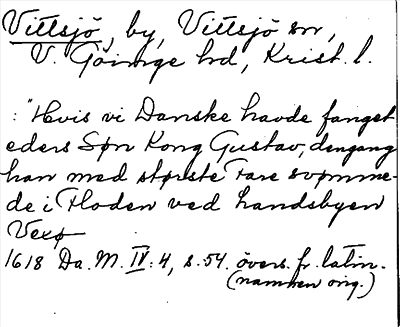 Vittsjö, by, Vittsjö sn,
V. Göinge hd, Krist. l.
: "Hvis vi Danske havde fanget
eders Søn Kong Gustav, dengang
han med største Fare svømme-
de i Floden ved Landsbyen
Vexø
1618 Da. M. IV: 4, s. 54. övers. fr. latin.
(namnen orig.)